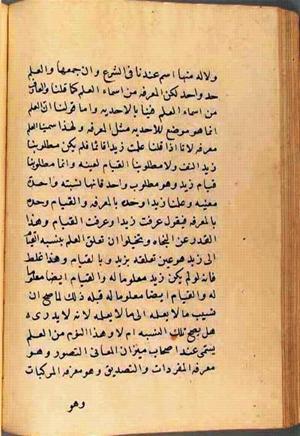 ولا له منها اسم عندنا في الشرع وان جمعها والعلم
حد واحد لكن المعرفة من اسماء العلم كما قلنا والعلم
من اسماء العلم فينا بالاحدية واما قولنا ان العلم
انما هو موضع للاحدية مثل المعرفة ولهذا سمينا العلم
معرفة لانا اذا قلنا علمت زيدا قائما فلم يكن مطلوبنا
زيد لنفسه ولا مطلوبنا القيام لعينه وانما مطلوبنا
قيام زيد وهو مطلوب واحد فانها نسبة واحدة
معينة وعلمنا زيدا وحده بالمعرفة والقيام وحده
بالمعرفة فنقول عرفت زيدا وعرفت القيام وهذا
القدر عن النحاة وتخيلوا ان تعلق العلم بنسبة القيام
الى زيد هو عين تعلقه بزيد وبالقيام وهذا غلط
فانه لو لم يكن زيد معلوما له والقيام ايضا معلوما
له والقيام ايضا معلوما له قبله ذلك لما صح ان
نسب ما لا يعلمه الى ما لا يعلمه لانه لا يدرى
هل يصح تلك النسبة ام لا وهذا النوع من العلم
يسمى عند اصحاب ميزان المعاني التصور وهو
معرفة المفردات والتصديق وهو معرفة المركبات
وهو